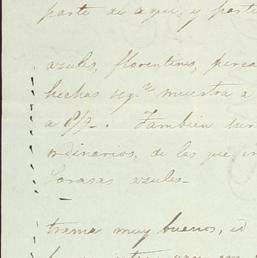 parte de aqui, y part
azules, florentines, perca
hechas seg.n muestra a
a P/9_. Tambien sur
ordinarios, de las que en
azules_
trama muy buenos, id